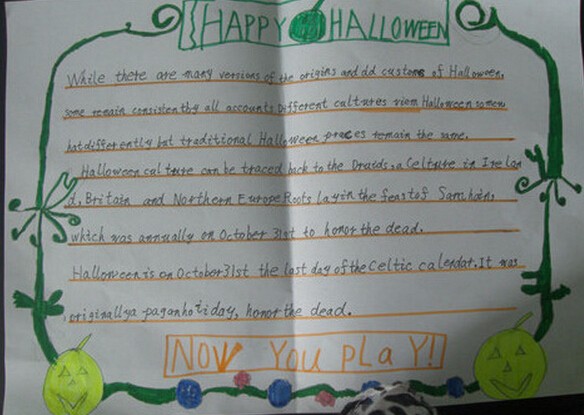 HAPPY HALLOWEEN
While there are many versions of the origins and dd customs of Halloween,
some remain consistenthy all accounts. Different cultures view Halloween somew
hat differently but traditional Halloween praces remain the same.
Halloween culture can be traced back to the Druids, a Celture in Irelan
d, Britain and Northern Europe Roots lay in the feast of Samhain,
which was annually on October 31st to honor the dead.
Halloween is on October 31st the last day of the Celtic calendat. It was
originally a pagan hotiday, honor the dead.
NOW YOU PLAY!